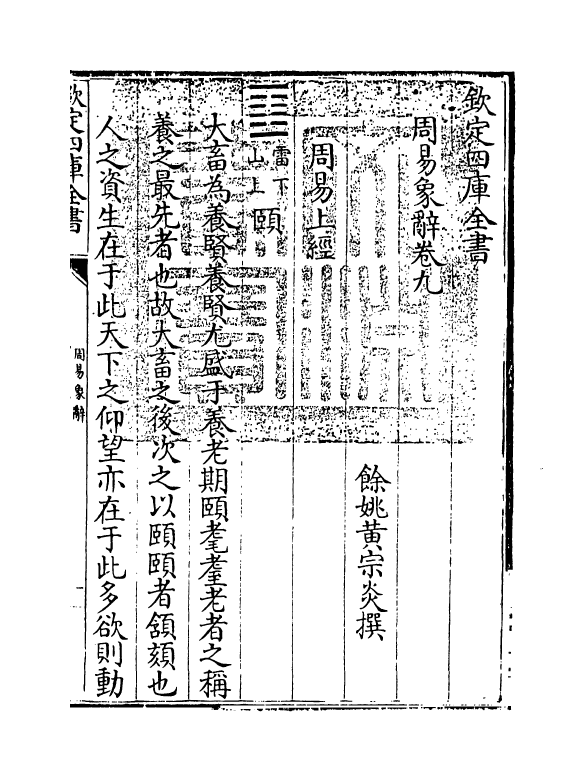 欽定四庫全書
周易象辭卷九
餘姚黃宗炎撰
周易上經
䷚
震下
艮上
頤
大畜為養賢養賢尤盛于養老期頤耄耋老者之稱
養之最先者也故大畜之後次之以頤頤者頷頦也
人之資生在于此天下之仰望亦在于此多欲則動
欽定四庫全書
周易象辭
一